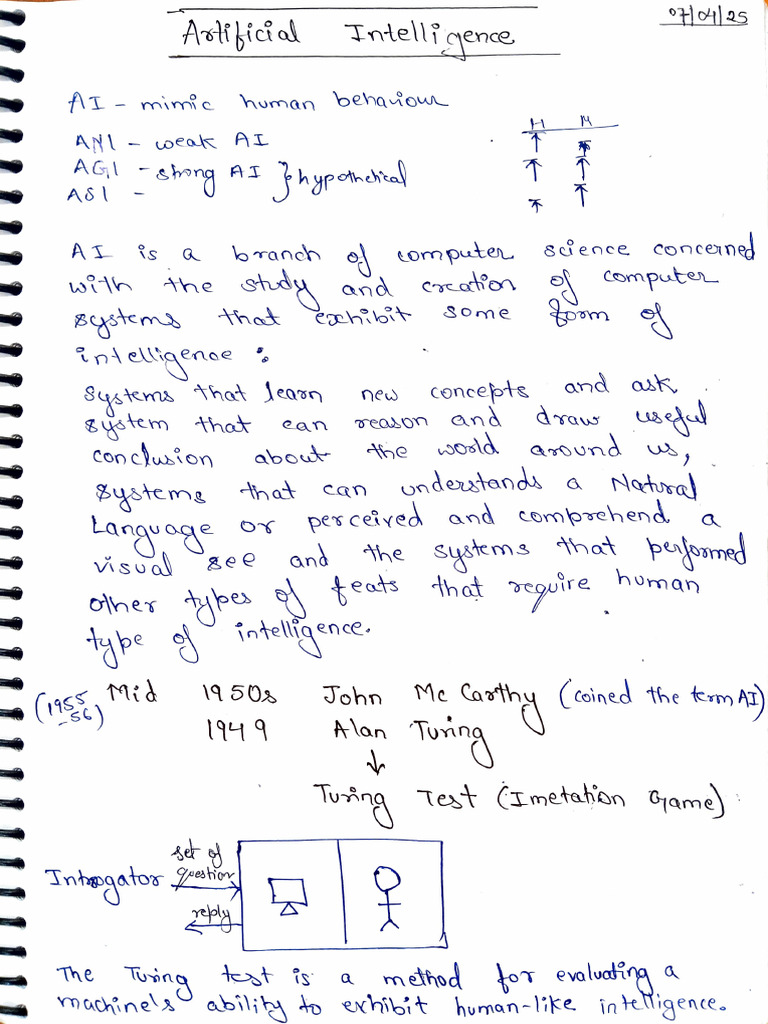 07/04/25
Artificial Intelligence
AI - mimic human behaviour
H M
ANI - weak AI
AGI - strong AI } hypothetical
ASI -
AI is a branch of computer science concerned
with the study and creation of computer
systems that exhibit some form of
intelligence :
systems that learn new concepts and ask
system that can reason and draw useful
conclusion about the world around us,
systems that can understands a Natural
Language or perceived and comprehend a
visual see and the systems that performed
other types of feats that require human
type of intelligence.
(1955-56) Mid 1950s John Mc Carthy (coined the term AI)
1949 Alan Turing
Turing Test (Imetation Game)
set of
Introgator question
reply
The Turing test is a method for evaluating a
machine's ability to exhibit human-like intelligence.